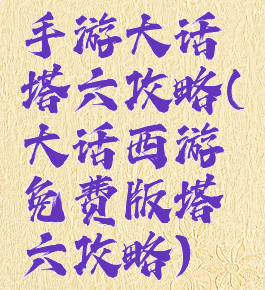 手游大话
塔六攻略(
大话西游
免费版塔
六攻略)